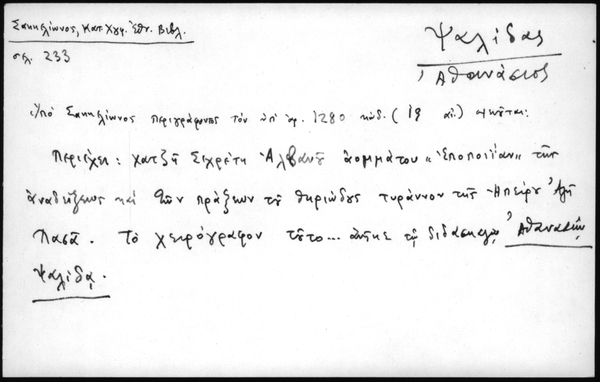 Σακκελίωνος, Κατ. Χγφ. Ἐθν. Βιβλ.
σελ. 233
Ψαλίδας
Ἀθανάσιος
Ὑπὸ Σακκελίωνος περιγράφοντος τὸν ὑπ' ἀρ. 1280 κώδ. (19 αἰ.) σημειοῦται:
Περιέχει: χατζῆ Σεχρέτη Ἀλβανοῦ ἀομμάτου «ἐποποιΐαν» τῆς
ἀναδείξεως καὶ τῶν πράξεων τοῦ θηριώδους τυράννου τῆς Ἠπείρου Ἀλῆ
Πασᾶ. Τὸ χειρόγραφον τοῦτο... ἀνῆκε τῷ διδασκάλῳ Ἀθανασίῳ
Ψαλίδᾳ.